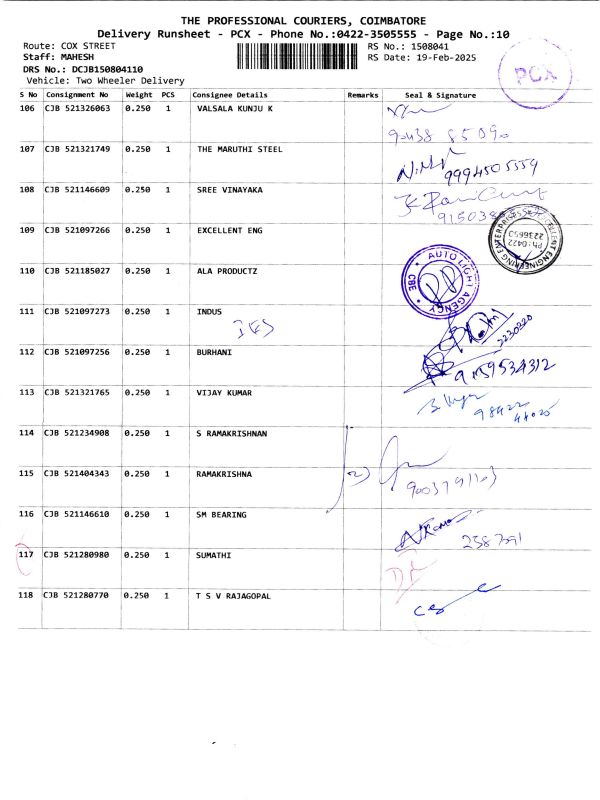 THE PROFESSIONAL COURIERS, COIMBATORE
Delivery Runsheet - PCX - Phone No.:0422-3505555 - Page No.:10
Route: COX STREET
RS No.: 1508041
Staff: MAHESH
RS Date: 19-Feb-2025
DRS No.: DCJB150804110
Vehicle: Two Wheeler Delivery
PCX
S No Consignment No Weight PCS Consignee Details Remarks Seal & Signature
106 CJB 521326063 0.250 1 VALSALA KUNJU K
90438 85090
107 CJB 521321749 0.250 1 THE MARUTHI STEEL
9994505559
108 CJB 521146609 0.250 1 SREE VINAYAKA
109 CJB 521097266 0.250 1 EXCELLENT ENG
EXCELLENT ENGINEERING ENTERPRISES
PH:0422
2236653
110 CJB 521185027 0.250 1 ALA PRODUCTZ
AUTO LIGHT AGENCY
CBE
111 CJB 521097273 0.250 1 INDUS
2230320
112 CJB 521097256 0.250 1 BURHANI
9159534312
113 CJB 521321765 0.250 1 VIJAY KUMAR
98422
44020
114 CJB 521234908 0.250 1 S RAMAKRISHNAN
115 CJB 521404343 0.250 1 RAMAKRISHNA
9003791103
116 CJB 521146610 0.250 1 SM BEARING
2387391
117 CJB 521280980 0.250 1 SUMATHI
118 CJB 521280770 0.250 1 T S V RAJAGOPAL